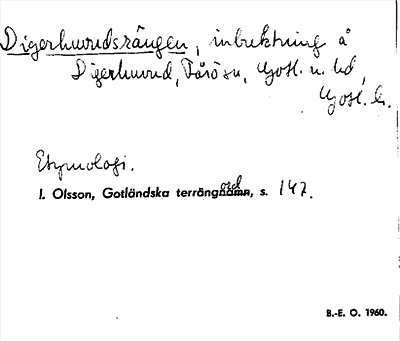 Digerhuvudsrängen, inbuktning å
Digerhuvud, Fårö sn, Gotl. n. hd,
Gotl. l.
Etymologi.
I. Olsson, Gotländska terrängord, s. 147.
B.-E. O. 1960.